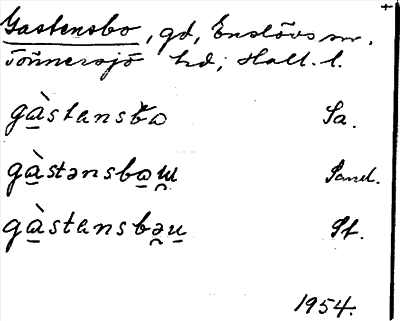 Gastensbo, gd, Enslövs sn.
Tönnersjö hd; Hall. l.
gàstansbo Sa.
gàstənsbo̯ɯ Sand.
gàstansbə̯u St.
1954.